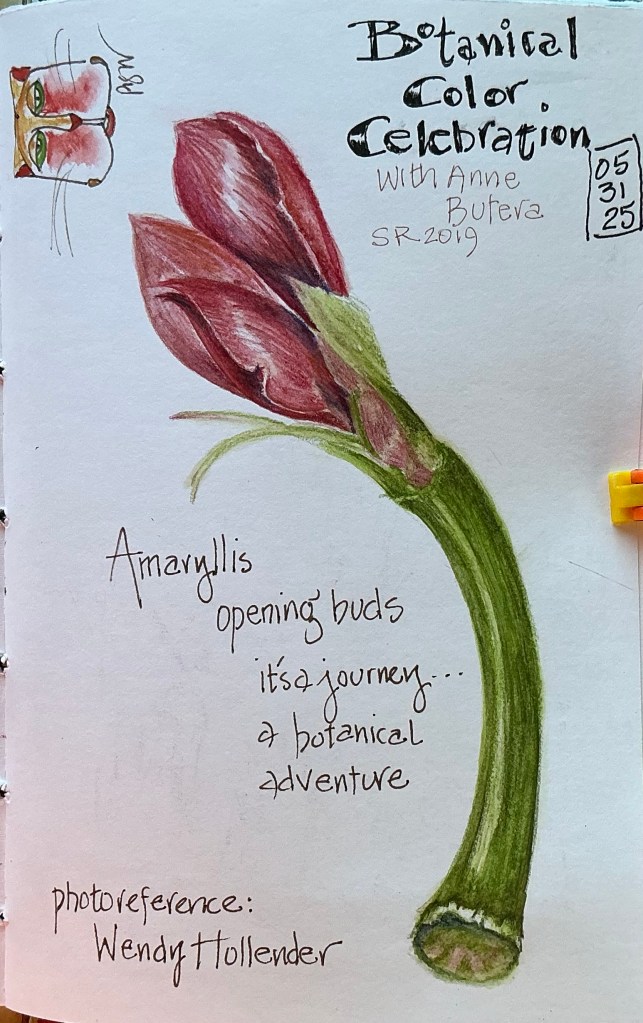 Botanical
Color
Celebration
With Anne
Butera
SR2019
05
31
25
Amaryllis
opening buds
it's a journey...
a botanical
adventure
photoreference:
Wendy Hollender